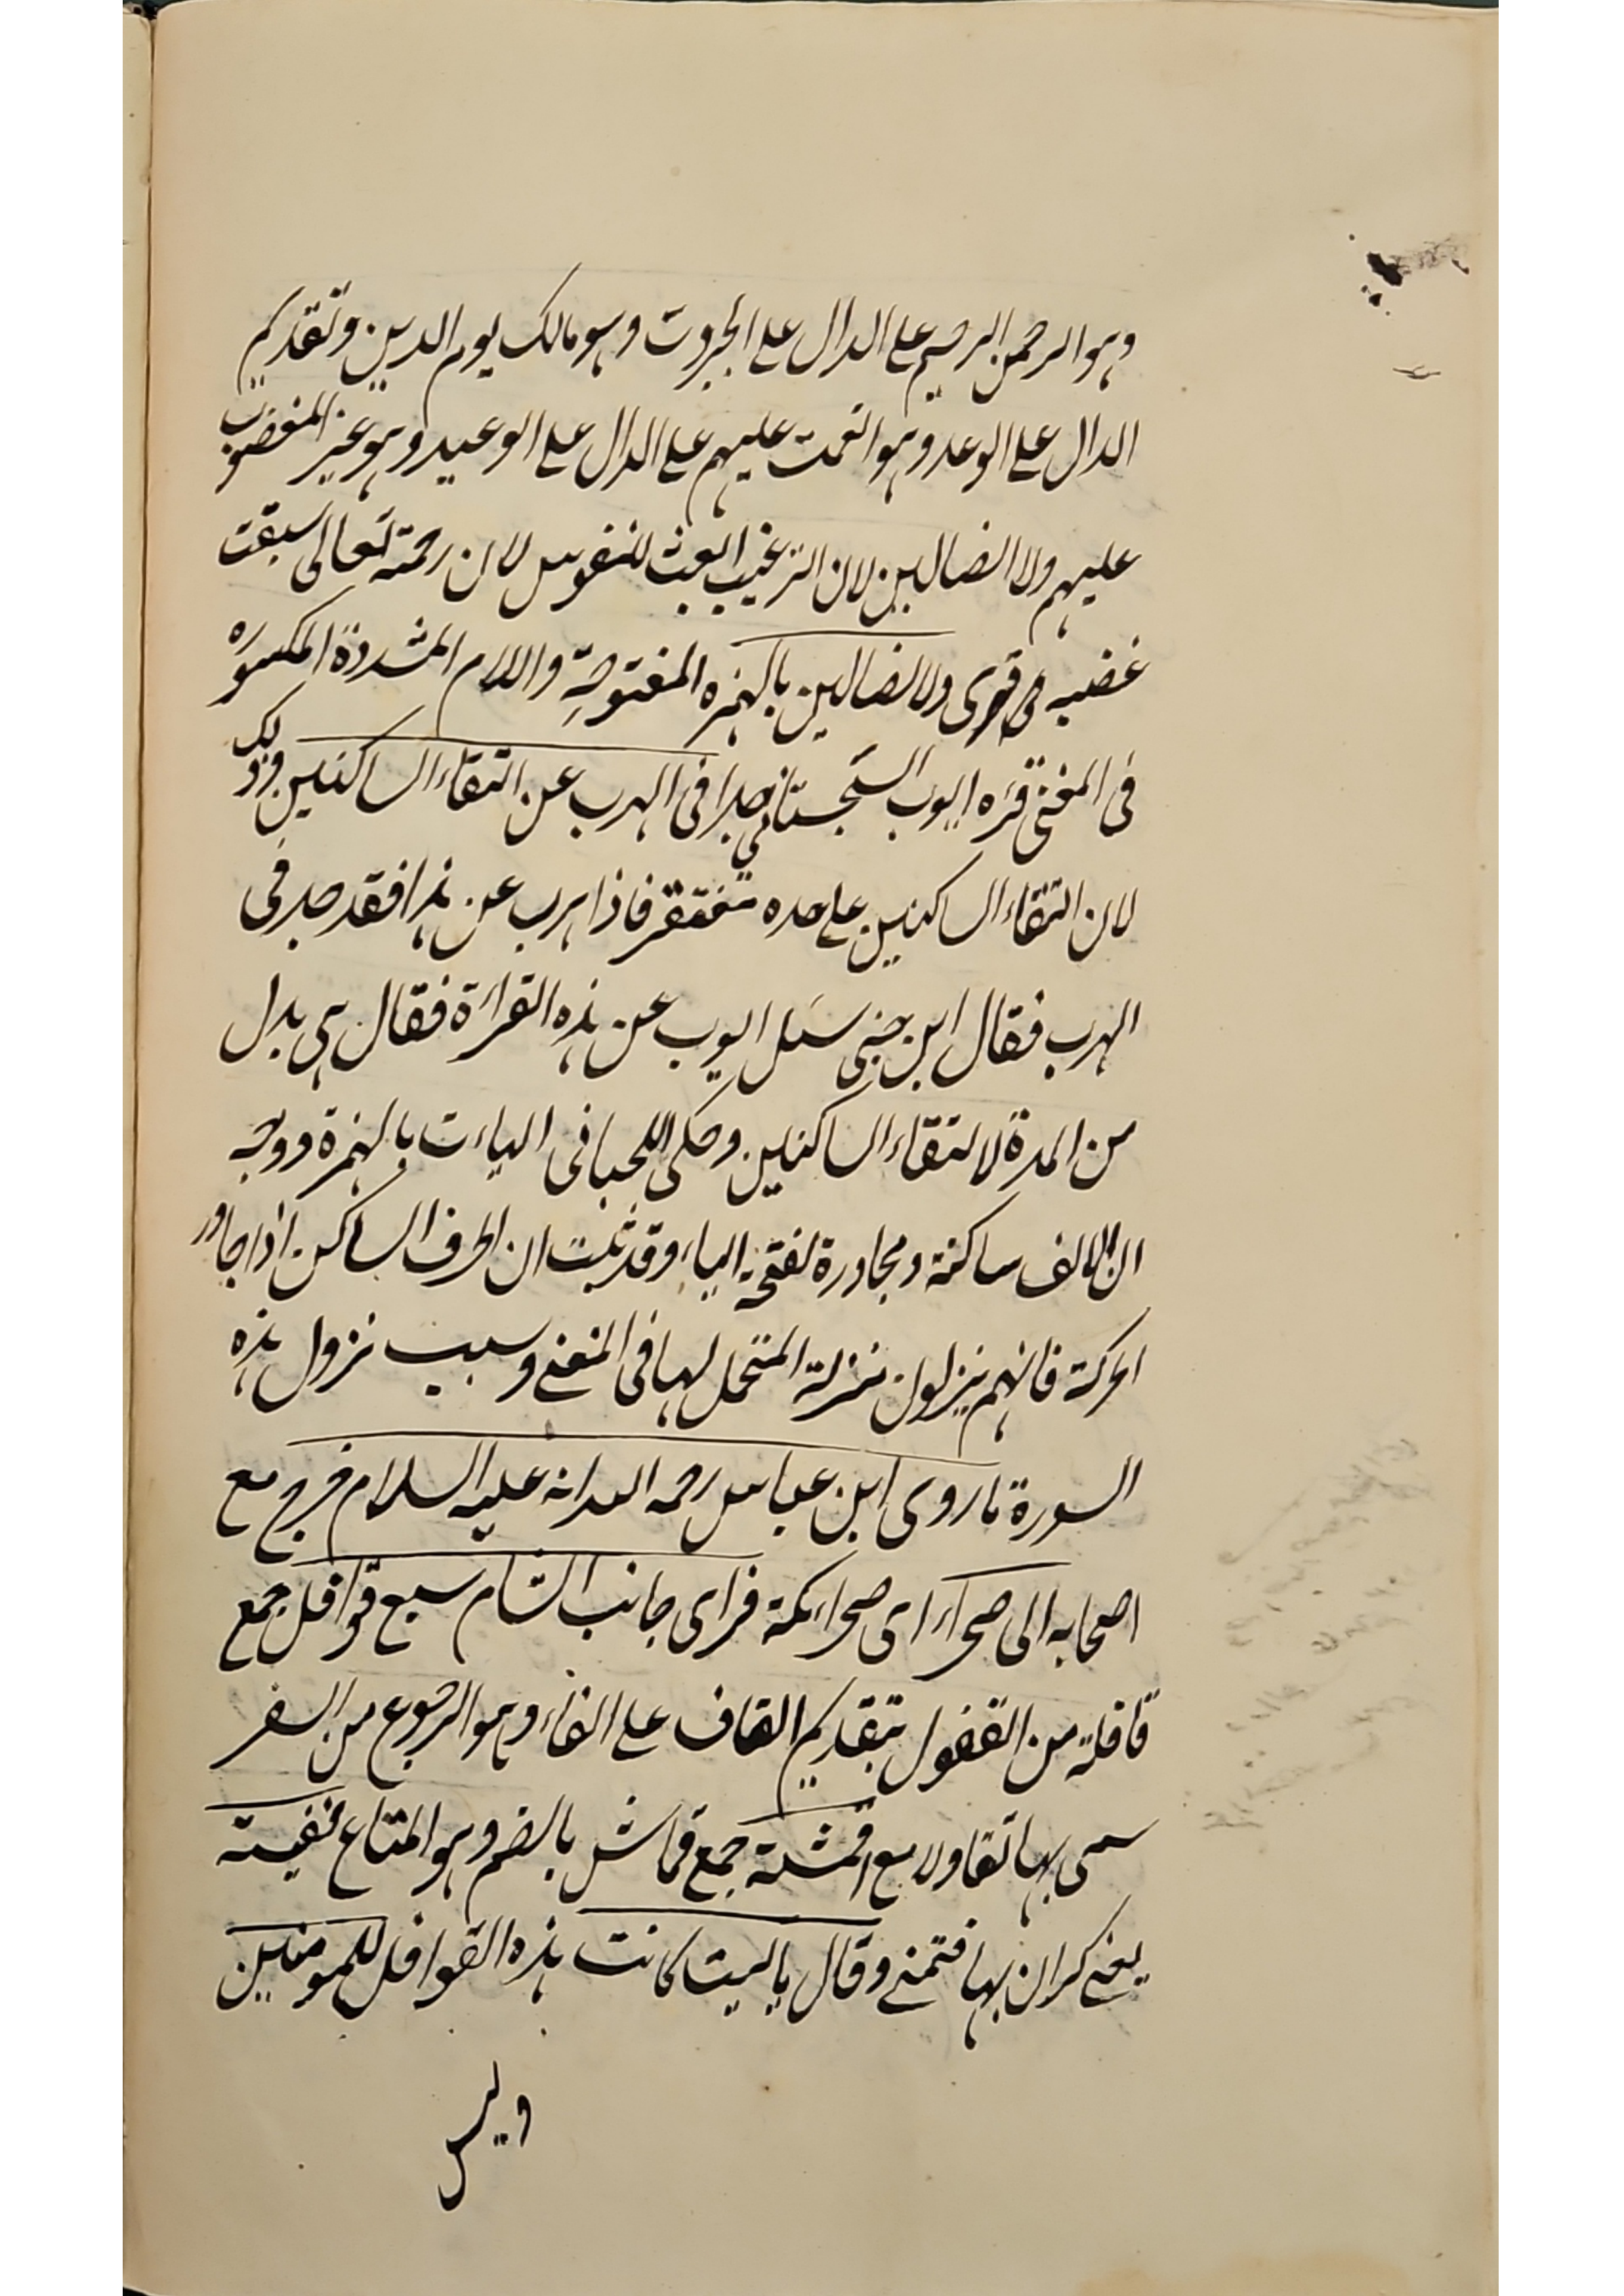 وهو الرحمن الرحيم على الدال على الجبروت وهو مالك يوم الدين وتقديم
الدال على الوعد وهو انعمت عليهم على الدال على الوعيد وهو غير المغضوب
عليهم ولا الضالين لان الترغيب ابعث للنفوس لان رحمته تعالى سبقت
غضبه وقرى ولا الضالين بالهمزه المفتوحة واللام المشددة المكسوره
فى المغنى قره ايوب السجستانى جدا فى الهرب عن التقاء الساكنين وذلك
لان التقاء الساكنين على حده مغتفر فاذا هرب عن هذا فقد جد فى
الهرب فقال ابن جنى سئل ايوب عن هذه القراءة فقال هى بدل
من المدة لالتقاء الساكنين وحكى اللحيانى الياءت بالهمزة ووجه
ان الالف ساكنة ومجاورة لفتحة الياء وقد ثبت ان الحرف الساكن اذا جاور
الحركة فانهم ينزلون منزلة المتحمل لها فى المغنى وسبب نزول هذه
السورة ما روى ابن عباس رحمه الله انه عليه السلام خرج مع
اصحابه الى صحراء اى صحراء مكة فراى جانب الشام سبع قوافل جمع
قافلة من القفول بتقديم القاف على الفاء وهو الرجوع من السفر
سمى بها تفاولا مع اقمشة جمع قماش بالضم وهو المتاع نفيسة
يعنى كران بها فتمنى وقال يا ليت كانت هذه القوافل للمومنين
وليس